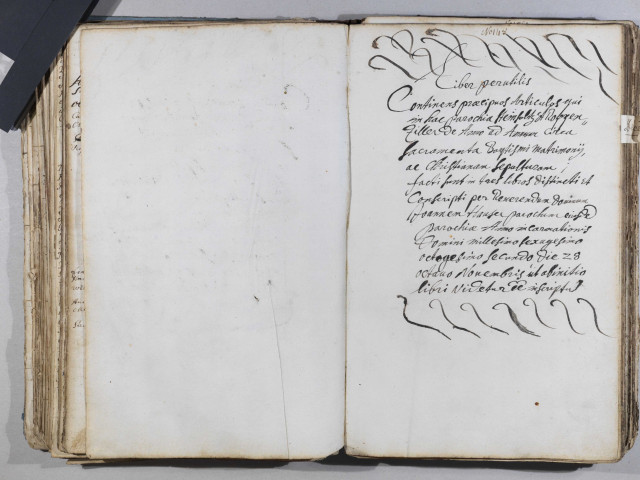 Liber perutilis
Continens præcipuos Articulos qui
in hac parochia Heimsltz, & Roggen„
Ziller de Anno ad Annum Circa
Sacramenta Baptismi Matrimonij,
ac Christianam Sepulturam,
facti sunt in tres libros distincti et
Conscripti per Reverendum Dominum
Joannem parochum
parochiæ Anno incarnationis
Domini millesimo sexagesimo
octogesimo secundo die 28
octavo Novembris ut ab initio
libri videtur de inscriptus